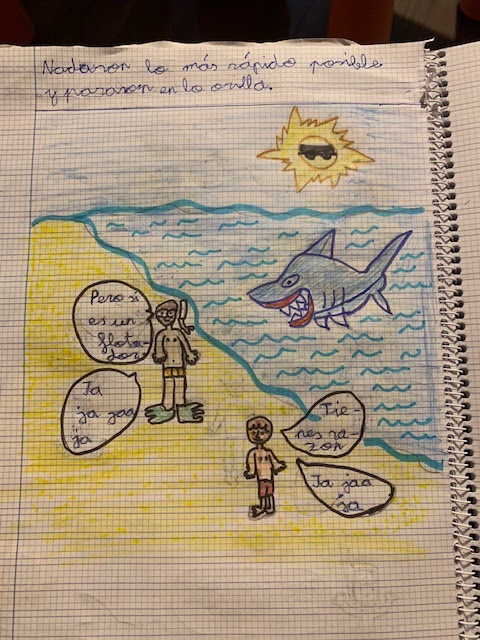 Nadaron lo más rápido posible
y pararon en lo orilla.
Pero si
es un
flota-
dor
Ja
ja jaa
ja
Tie-
nes ra
zon
Ja jaa
ja